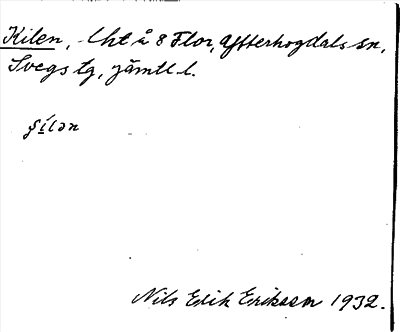 Kilen, lht å 8 Flor, Ytterhogdals sn,
Svegs tg, Jämtl l.
Nils Erik Eriksson 1932.